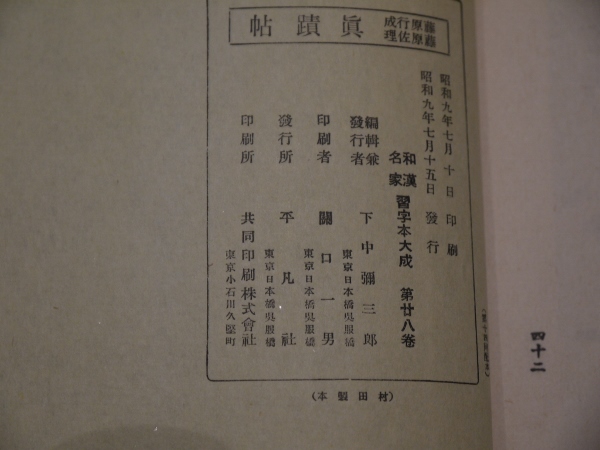 四十二
昭和九年七月十日　印刷
昭和九年七月十五日　發行
和漢名家 習字本大成　第廿八卷
編輯兼發行者　下中彌三郎
東京日本橋吳服橋
印刷者　關口一男
東京日本橋吳服橋
發行所　平凡社
東京日本橋吳服橋
印刷所　共同印刷株式會社
東京小石川久堅町
藤原佐理
藤原行成
眞蹟帖
（村田製本）